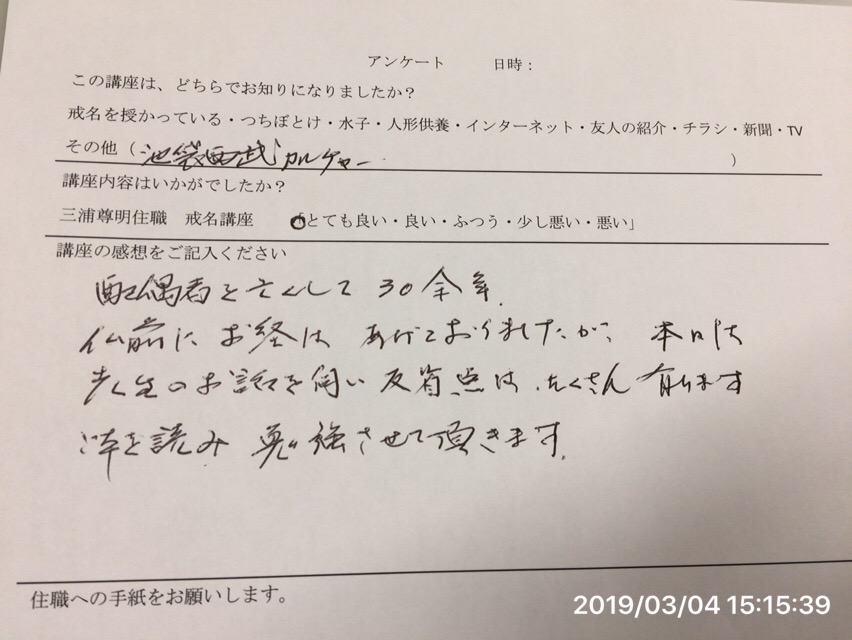 アンケート 日時：
この講座は、どちらでお知りになりましたか？
戒名を授かっている・つちぼとけ・水子・人形供養・インターネット・友人の紹介・チラシ・新聞・TV
その他（池袋西武カルチャー）
講座内容はいかがでしたか？
三浦尊明住職 戒名講座 「とても良い・良い・ふつう・少し悪い・悪い」
講座の感想をご記入ください
配偶者を亡くして30余年.
仏前にお経は あげておりましたが、本日は
先生のお話を伺い反省点は、たくさん有ります
本を読み 勉強させて頂きます.
住職への手紙をお願いします。
2019/03/04 15:15:39